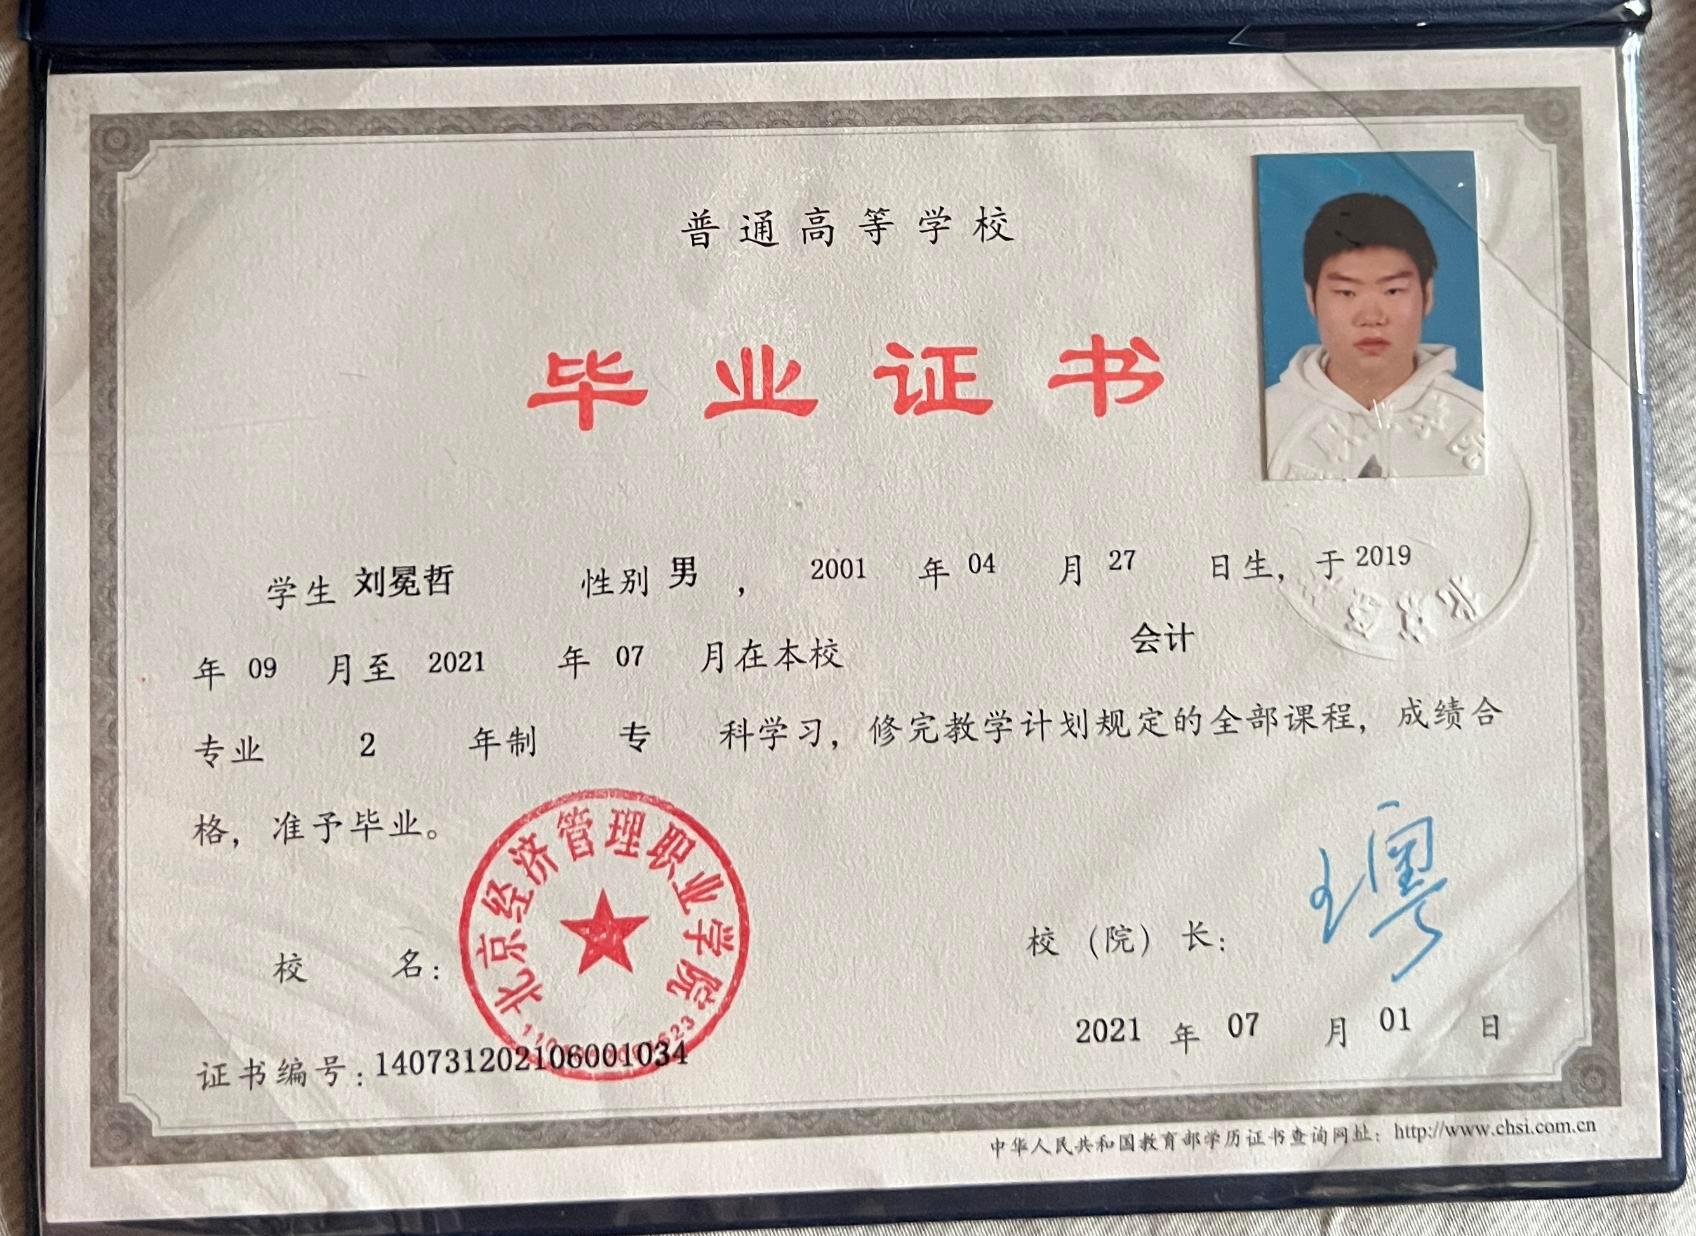 普通高等学校
毕业证书
学生 刘冕哲 性别 男 ， 2001 年 04 月 27 日生，于 2019
年 09 月至 2021 年 07 月在本校 会计
专业 2 年制 专 科学习，修完教学计划规定的全部课程，成绩合
格，准予毕业。
北京经济管理职业学院
校 名：
校（院）长：
2021 年 07 月 01 日
证书编号：140731202106001034
中华人民共和国教育部学历证书查询网址：http://www.chsi.com.cn